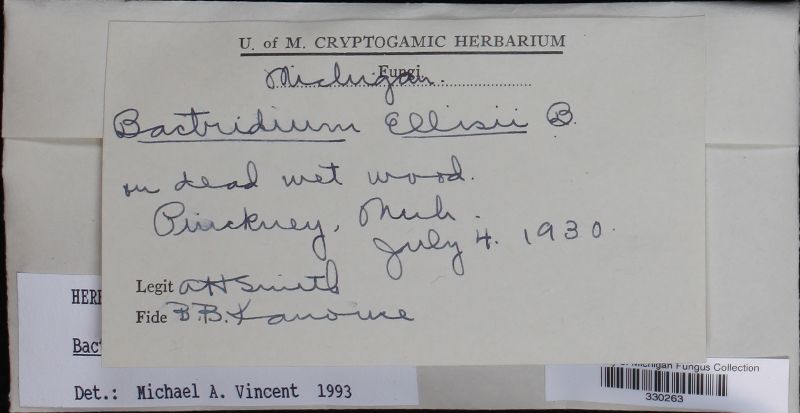 U. of M. CRYPTOGAMIC HERBARIUM
Fungi
Michigan.
Bactridium Ellisii B.
on dead wet wood.
Pinckney, Mich.
July 4. 1930.
Legit AH Smith
Fide B.B. Kanouse
HERB
Bact
Det.: Michael A. Vincent 1993
Michigan Fungus Collection
330263